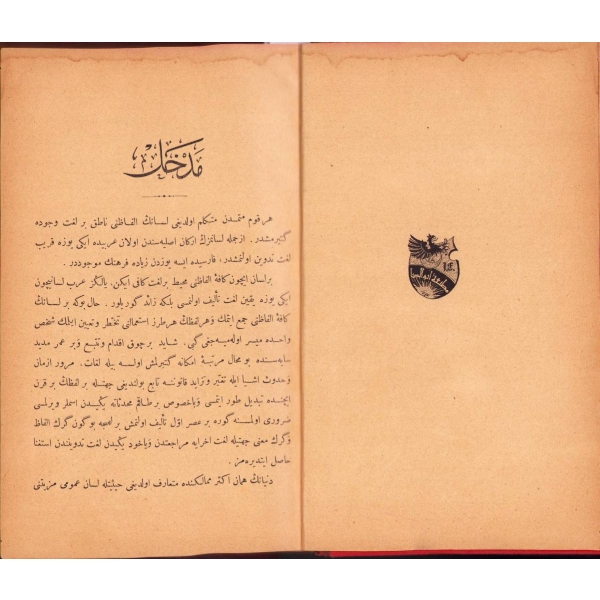 مدخل
هر قوم متمدن متكلم اولديغى لسانك الفاظنى ناطق بر لغت وجوده
كتيرمشدر . ازجمله لسانمزك اركان اصليه‌سندن اولان عربيده ايكى يوزه قريب
لغت تدوين اولنمشدر ، فارسيده ايسه يوزدن زياده فرهنك موجوددر .
بر لسان ايچون كافهٔ الفاظنى محيط بر لغت كافى ايكن ، يالكز عرب لسانيچون
ايكى يوزه يقين لغت تأليف اولنمسى بلكه زائد كوريلور . حال بوكه بر لسانك
كافهٔ الفاظنى جمع ايتمك و هر لفظك هر طرز استعمالنى تخطر و تعيين ايلمك شخص
واحده ميسر اوله‌ميه‌جغى كبى . شايد بر چوق اقدام و تتبع و بر عمر مديد
سايه‌سنده بو محال مرتبهٔ امكانه كتيرلمش اولسه بيله لغات ، مرور ازمان
و حدوث اشيا ايله تغير و تزايد قانوننه تابع بولنديغى جهتله بر لفظك بر قرن
ايچنده تبديل طور ايتمسى و باخصوص بر طاقم محدثاته يكيدن اسملر ويرلمسى
ضرورى اولمسنه كوره بر عصر اول تأليف اولنمش بر لهجه بوكون كرك الفاظ
و كرك معنى جهتيله لغت اخرايه مراجعتدن و ياخود يكيدن لغت تدوينندن استغنا
حاصل ايتديره‌مز .
دنيانك همان اكثر ممالكنده متعارف اولديغى حيثيتله لسان عمومى مزيتنى